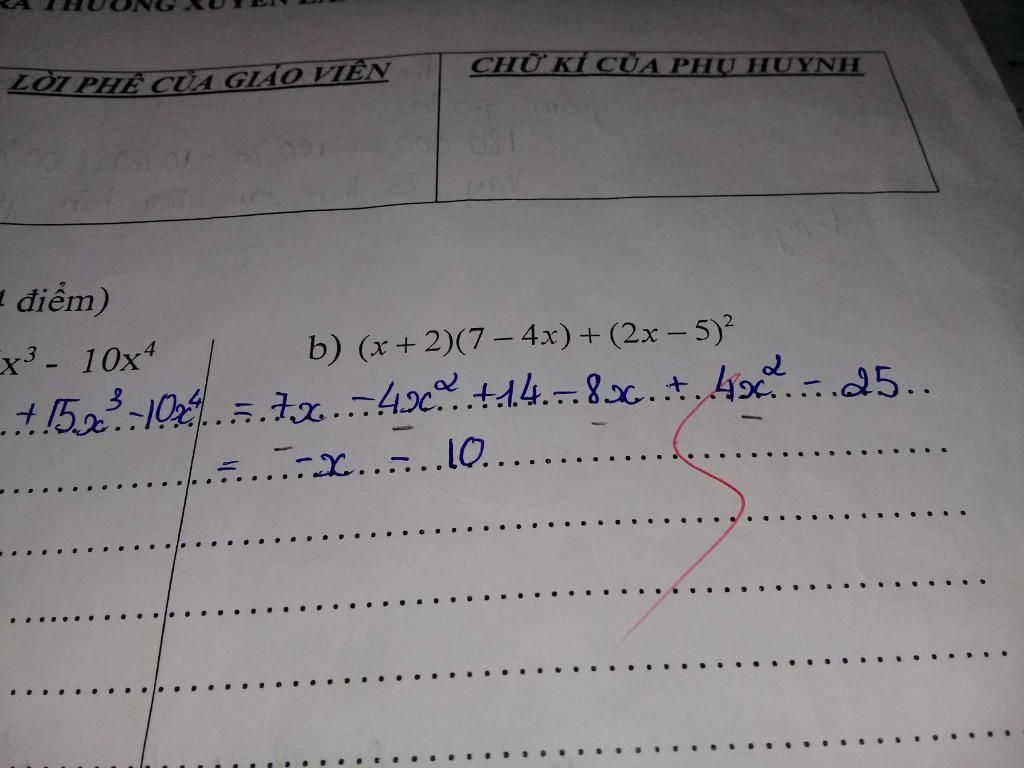 THƯỜNG XUYÊN
LỜI PHÊ CỦA GIÁO VIÊN
CHỮ KÍ CỦA PHỤ HUYNH
điểm)
x³ - 10x⁴
b) (x + 2)(7 − 4x) + (2x − 5)²
+ 15x³ - 10x⁴
= 7x - 4x² + 14 - 8x + 4x² - 25
= -x - 10